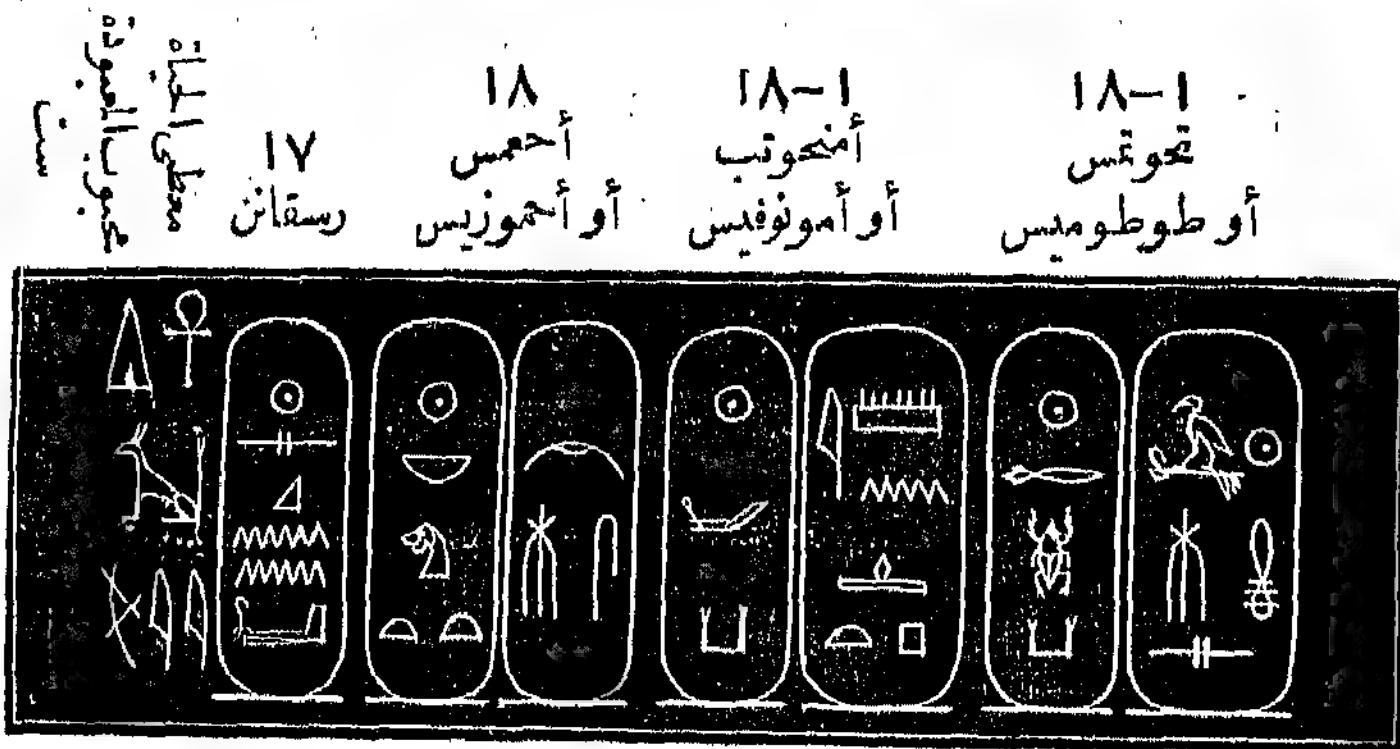 ١٨–١
تحوتمس
أو طوطوميس
١٨–١
أمنحوتب
أو أمونوفيس
١٨
أحمس
أو أحموزيس
١٧
رسقانن
معطى الحياة
محبوب المعبودة
ست